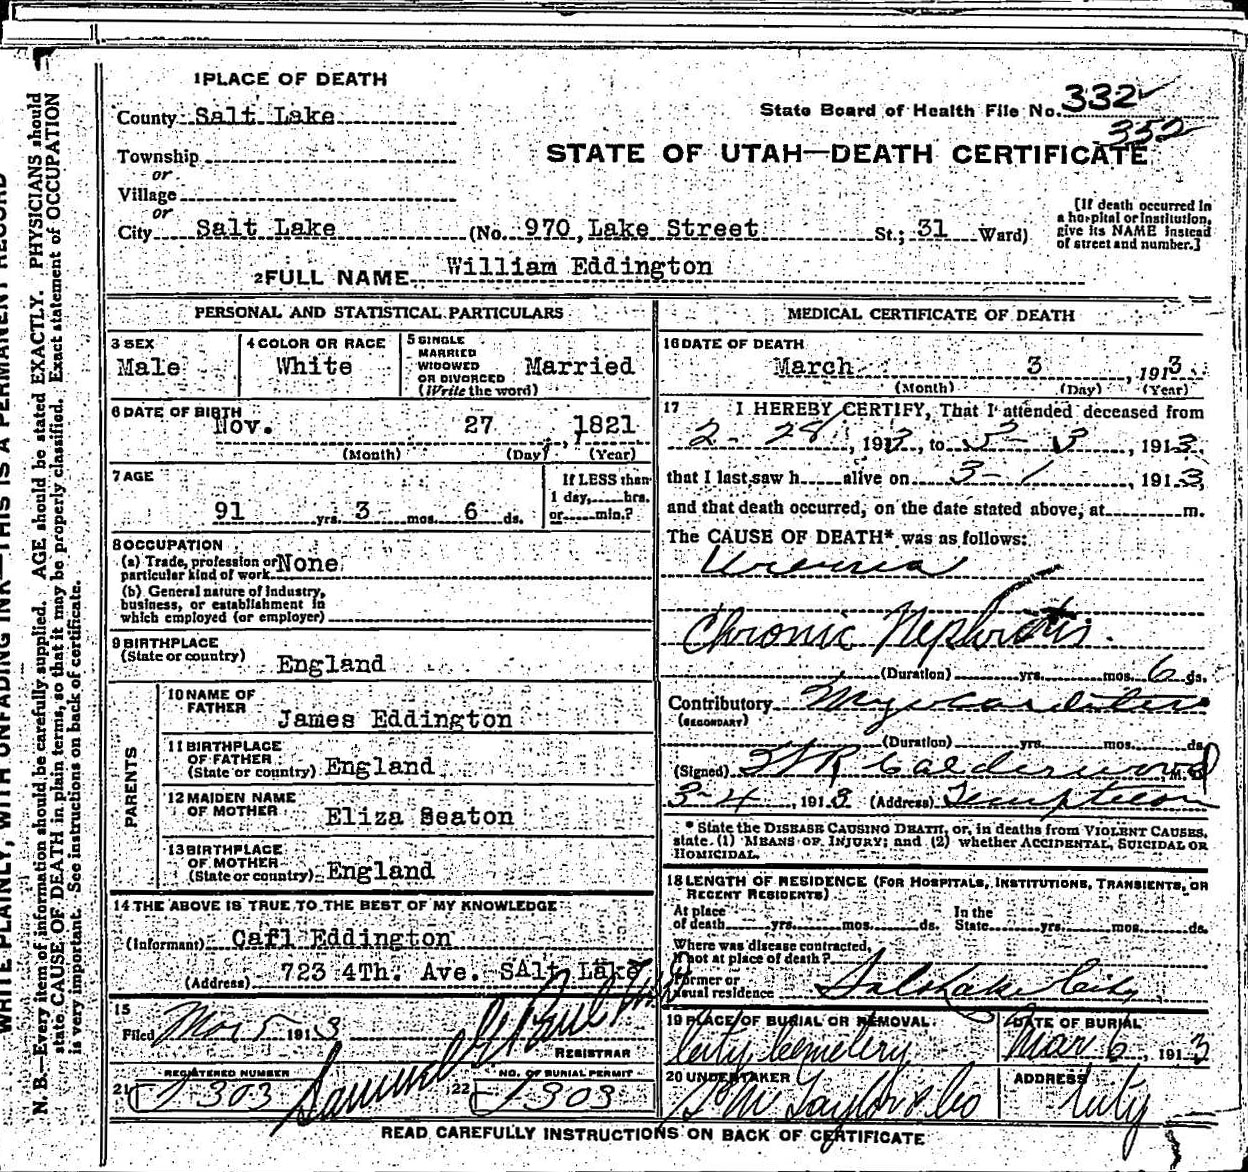 1 PLACE OF DEATH
County Salt Lake
State Board of Health File No. 332
352
Township
or
STATE OF UTAH—DEATH CERTIFICATE
Village
or
City Salt Lake (No. 970, Lake Street St.; 31 Ward)
[If death occurred in
a hospital or institution,
give its NAME instead
of street and number.]
2 FULL NAME William Eddington
PERSONAL AND STATISTICAL PARTICULARS
3 SEX
Male
4 COLOR OR RACE
White
5 SINGLE
MARRIED
WIDOWED
OR DIVORCED
(Write the word)
Married
6 DATE OF BIRTH
Nov. 27, 1821
(Month) (Day) (Year)
7 AGE
91 yrs. 3 mos. 6 ds.
If LESS than
1 day, hrs.
or min.?
8 OCCUPATION
(a) Trade, profession or None
particular kind of work
(b) General nature of industry,
business, or establishment in
which employed (or employer)
9 BIRTHPLACE
(State or country) England
PARENTS
10 NAME OF
FATHER
James Eddington
11 BIRTHPLACE
OF FATHER
(State or country) England
12 MAIDEN NAME
OF MOTHER Eliza Seaton
13 BIRTHPLACE
OF MOTHER
(State or country) England
14 THE ABOVE IS TRUE TO THE BEST OF MY KNOWLEDGE
(Informant) Carl Eddington
(Address) 723 4Th. Ave. SAlt Lake
15
Filed Mar 5 1913
Samuel G Paul
REGISTRAR
REGISTERED NUMBER
21 303
NO. OF BURIAL PERMIT
22 303
MEDICAL CERTIFICATE OF DEATH
16 DATE OF DEATH
March 3, 1913
(Month) (Day) (Year)
17 I HEREBY CERTIFY, That I attended deceased from
2-28, 1913, to 3-3, 1913,
that I last saw h alive on 3-1, 1913,
and that death occurred, on the date stated above, at m.
The CAUSE OF DEATH* was as follows:
Uremia
Chronic Nephritis.
(Duration) yrs. mos. 6 ds.
Contributory Myocarditis
(SECONDARY)
(Duration) yrs. mos. ds.
(Signed) Calderwood M.D
3-4, 1913 (Address) Templeton
* State the DISEASE CAUSING DEATH, or, in deaths from VIOLENT CAUSES,
state (1) MEANS OF INJURY; and (2) whether ACCIDENTAL, SUICIDAL OR
HOMICIDAL.
18 LENGTH OF RESIDENCE (FOR HOSPITALS, INSTITUTIONS, TRANSIENTS, OR
RECENT RESIDENTS)
At place
of death yrs. mos. ds.
In the
State yrs. mos. ds.
Where was disease contracted,
if not at place of death?
Former or
usual residence Salt Lake City
19 PLACE OF BURIAL OR REMOVAL
City Cemetery
DATE OF BURIAL
Mar 6, 1913
20 UNDERTAKER
S M Taylor & Co
ADDRESS
City
READ CAREFULLY INSTRUCTIONS ON BACK OF CERTIFICATE
WRITE PLAINLY, WITH UNFADING INK—THIS IS A PERMANENT RECORD
N. B.—Every item of information should be carefully supplied. AGE should be stated EXACTLY. PHYSICIANS should
state CAUSE OF DEATH in plain terms, so that it may be properly classified. Exact statement of OCCUPATION
is very important. See instructions on back of certificate.